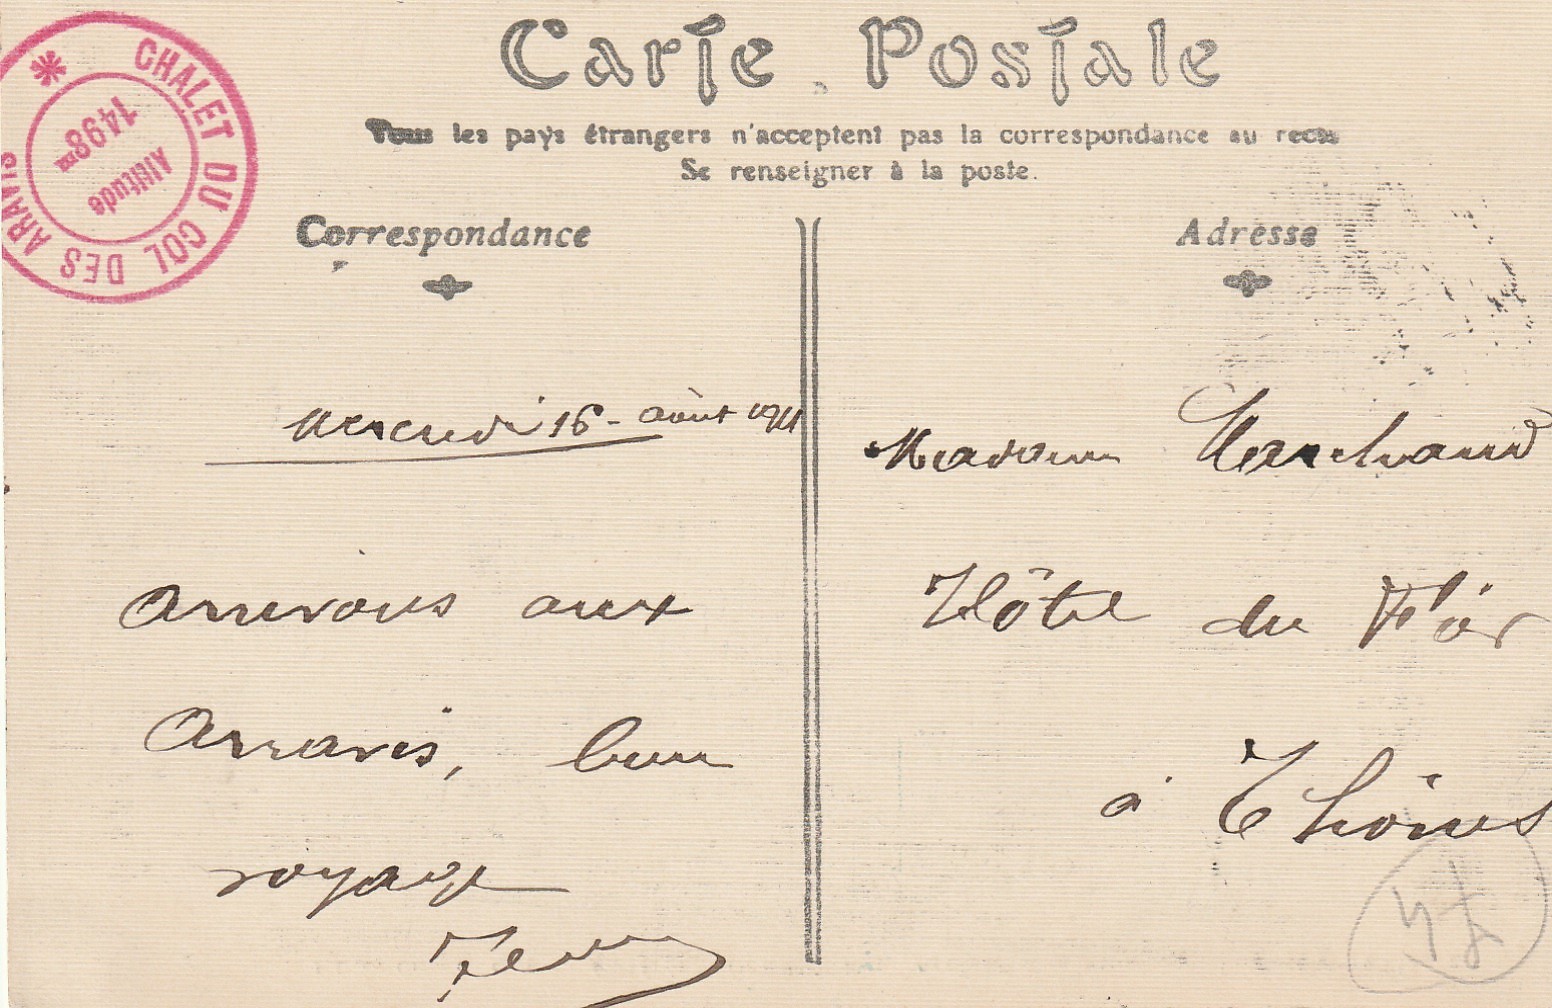 Carte Postale
Tous les pays étrangers n'acceptent pas la correspondance au recto
Se renseigner à la poste.
CHALET DU COL DES ARAVIS
Altitude
1498m
Correspondance
Mercredi 16 - août 1911
arrivons aux
Arravis, bon
voyage
Adresse
Madame Marchand
Hôtel du
à Thônes